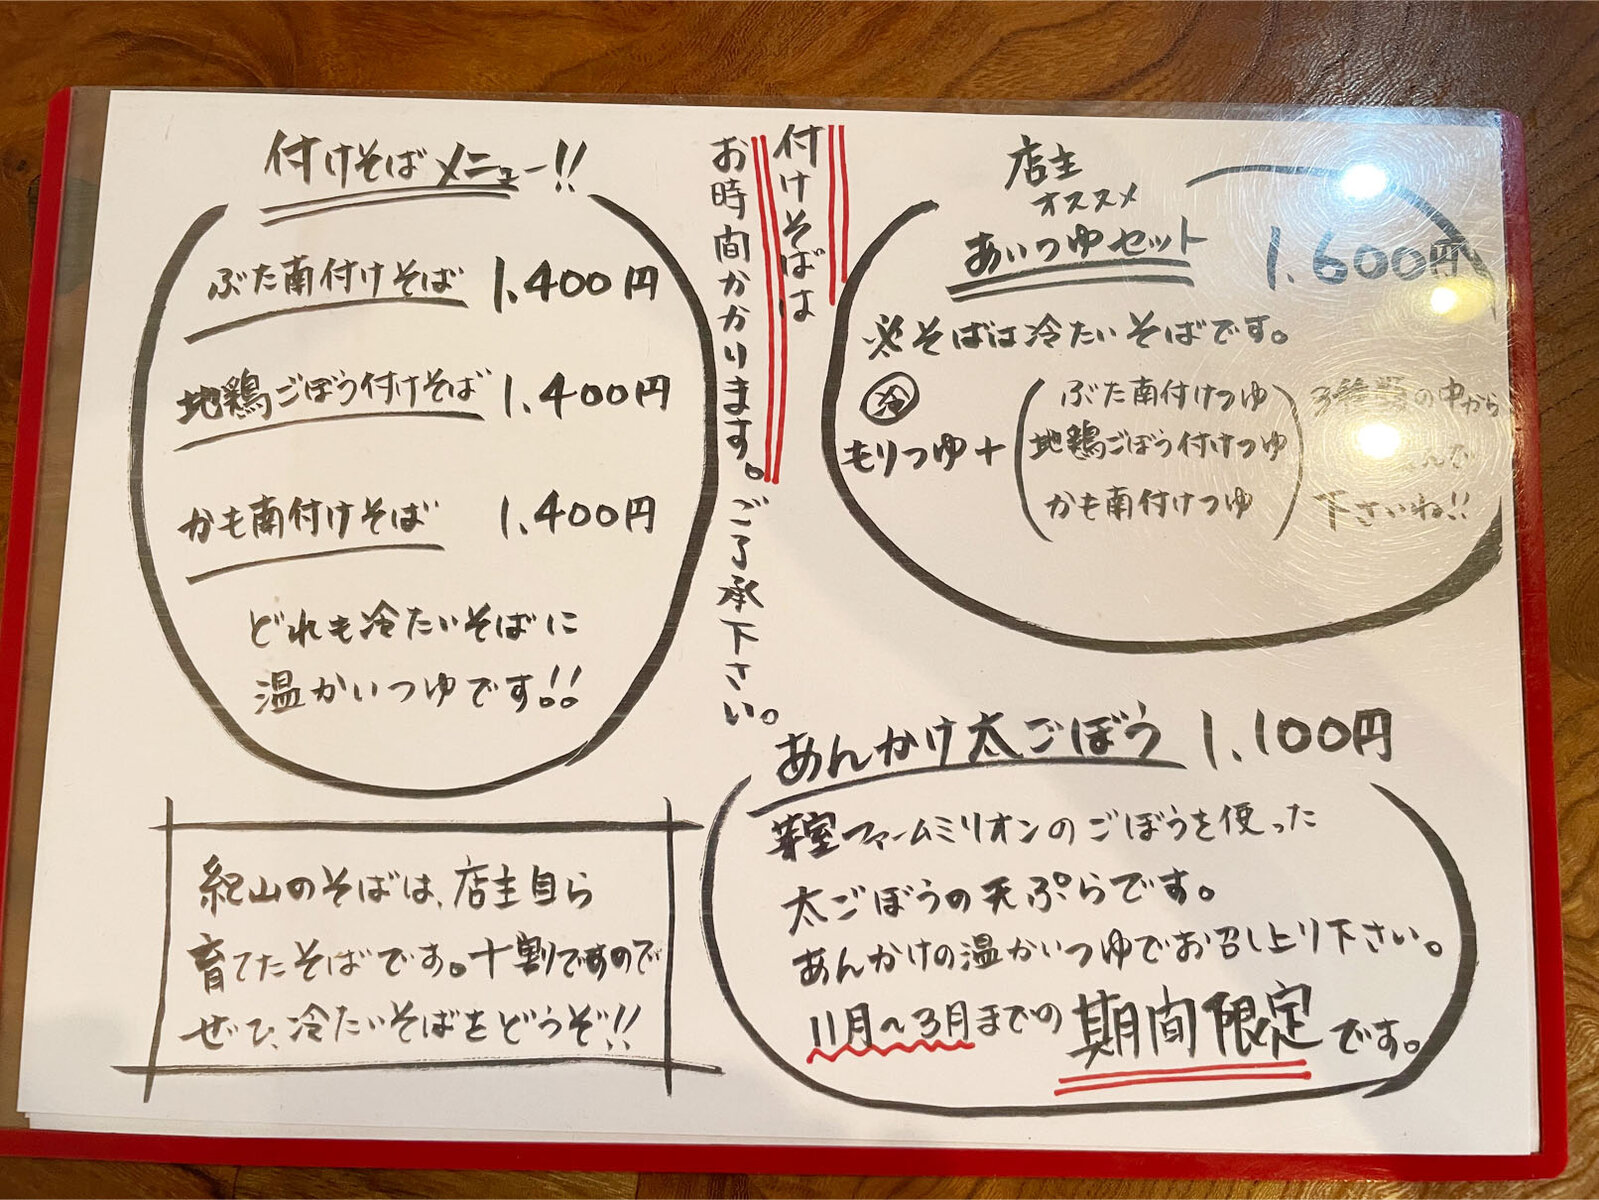 付けそばメニュー!!
ぶた南付けそば 1,400円
地鶏ごぼう付けそば 1,400円
かも南付けそば 1,400円
どれも冷たいそばに
温かいつゆです!!
付けそばは
お時間かかります。ご了承下さい。
店主
オススメ
あいつゆセット 1,600円
※そばは冷たいそばです。
冷
もりつゆ+
ぶた南付けつゆ
地鶏ごぼう付けつゆ
かも南付けつゆ
3種類の中から
んで
下さいね!!
あんかけ太ごぼう 1,100円
芽室ファームミリオンのごぼうを使った
太ごぼうの天ぷらです。
あんかけの温かいつゆでお召し上り下さい。
11月~3月までの期間限定です。
紀山のそばは、店主自ら
育てたそばです。十割ですので
ぜひ、冷たいそばをどうぞ!!